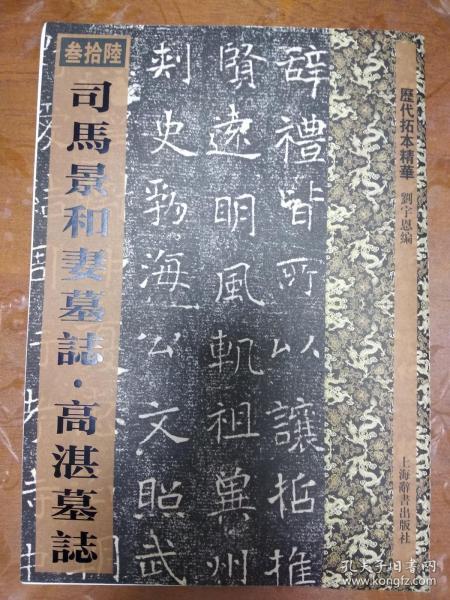 叁拾陸
司馬景和妻墓誌·高湛墓誌
歷代拓本精華
劉宇恩編
上海辭書出版社
辭禮皆所以讓括推
賢遠明風軌祖冀州
刺史勃海公文昭武
孔夫子旧书网
www.kongfz.com